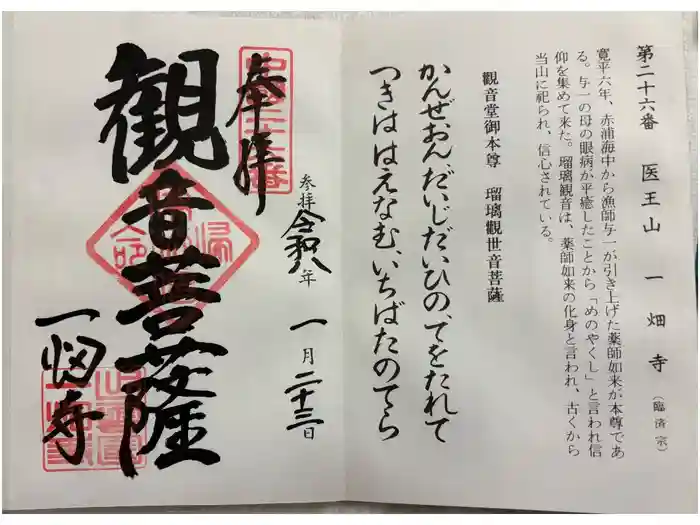 第二十六番　医王山　一畑寺（臨済宗）
寛平六年、赤浦海中から漁師与一が引き上げた薬師如来が本尊であ
る。与一の母の眼病が平癒したことから「めのやくし」と言われ信
仰を集めて来た。瑠璃観音は、薬師如来の化身と言われ、古くから
当山に祀られ、信心されている。
観音堂御本尊　瑠璃觀世音菩薩
かんぜおんだいじだいひの、てをたれて
つきははえなむ、いちばたのてら
奉拝
参拝 令和八年 一月二十三日
観音菩薩
一畑寺